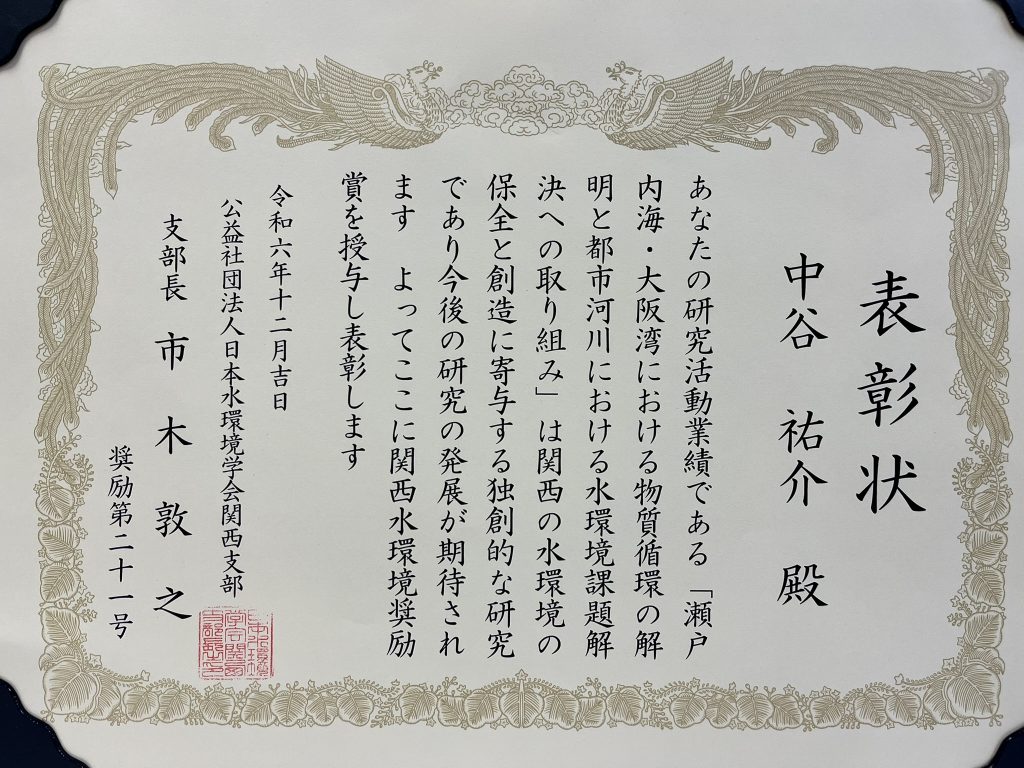 表彰状
中谷　祐介　殿
あなたの研究活動業績である「瀬戸
内海・大阪湾における物質循環の解
明と都市河川における水環境課題解
決への取り組み」は関西の水環境の
保全と創造に寄与する独創的な研究
であり今後の研究の発展が期待され
ます　よってここに関西水環境奨励
賞を授与し表彰します
令和六年十二月吉日
公益社団法人日本水環境学会関西支部
支部長　市木敦之
奨励第二十一号